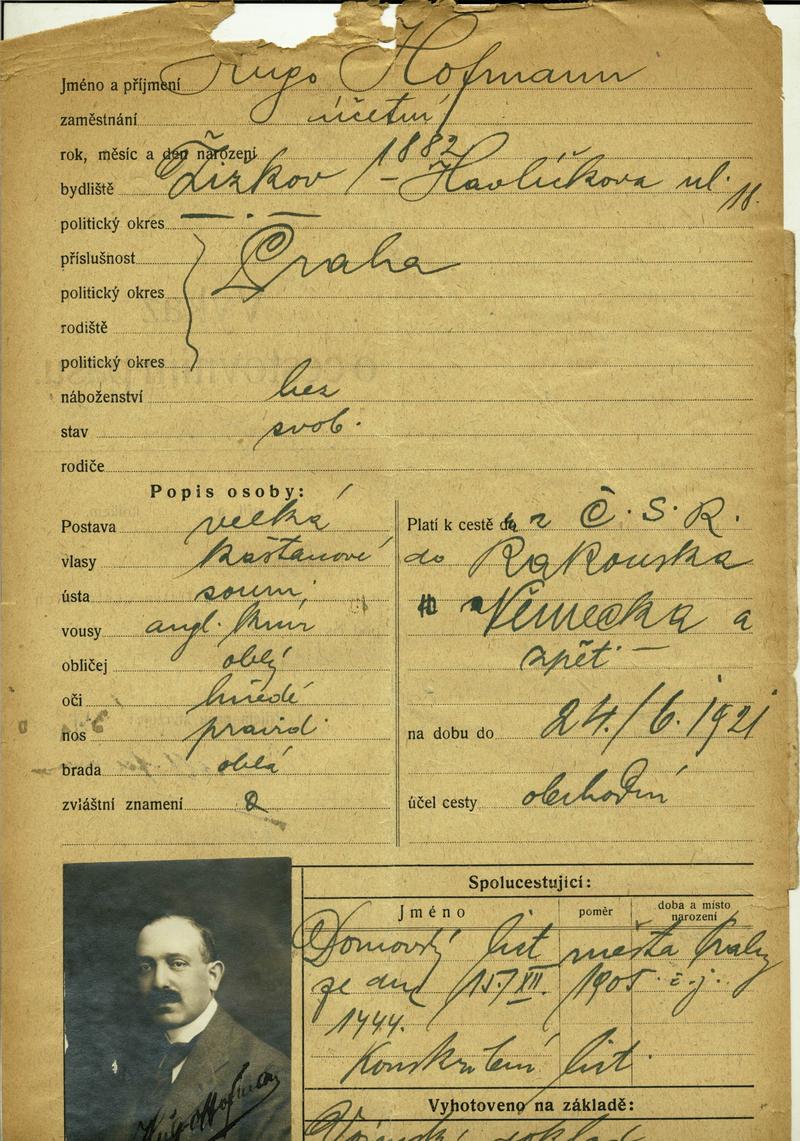 Jméno a příjmení Hugo Hofmann
zaměstnání účetní
rok, měsíc a den narození 1882
bydliště Žižkov Havlíčkova ul. 18.
politický okres — . —
příslušnost Praha
politický okres
rodiště
politický okres
náboženství bez
stav svob.
rodiče
Popis osoby:
Postava velká
vlasy kaštanové
ústa soum.
vousy angl. knír
obličej oblý
oči hnědé
nos pravid.
brada oblá
zvláštní znamení
Platí k cestě z Č. S. R.
do Rakouska
Německa a
zpět —
na dobu do 24./6. 1921
účel cesty obchodní
Spolucestující:
Jméno
poměr
doba a místo
narození
Domovský list města Prahy
ze dne 15/XII. 1905 č. j.
1444.
Konskripční list.
Vyhotoveno na základě:
Hugo Hofmann